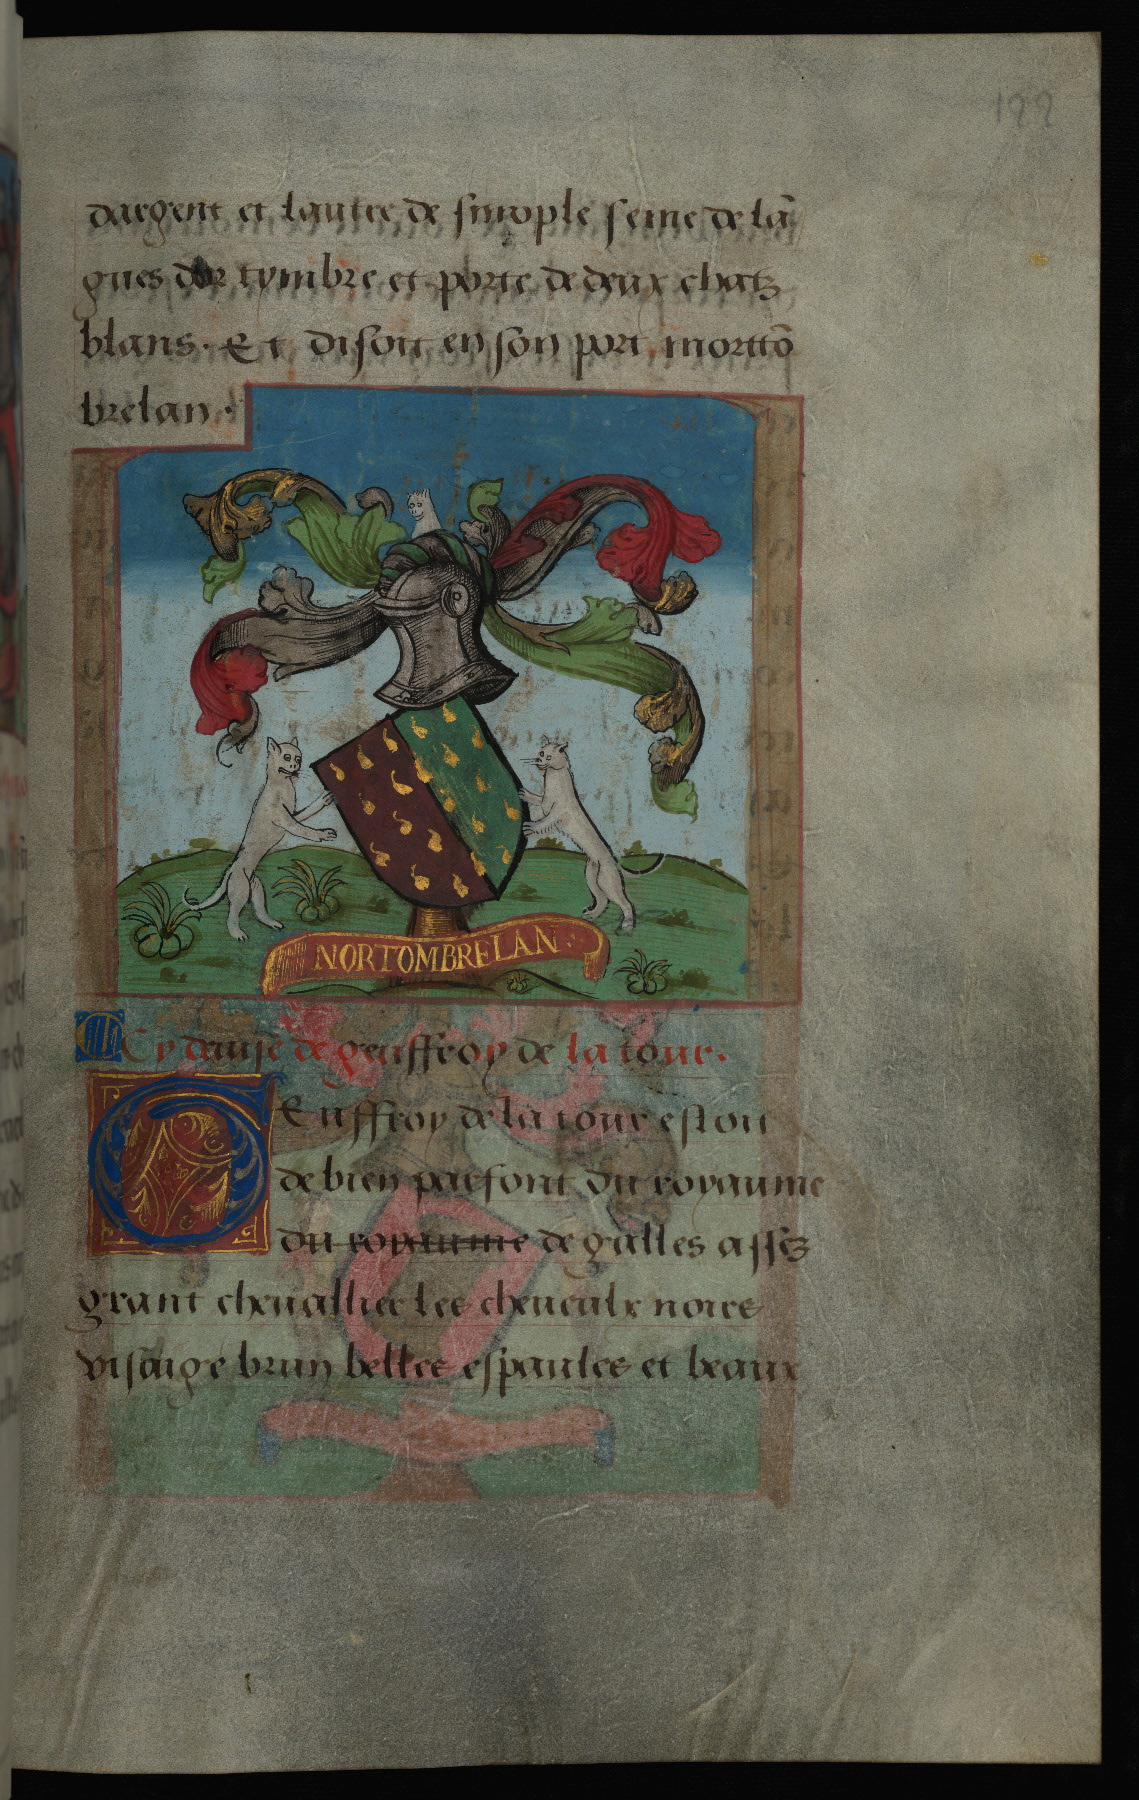 122
dargent et lautre de sinople seme de lā
gues dor tymbre et porte de deux chatz
blans. Et disoit en son port mortō
brelan.
NORTOMBRELAN.
Cy deuise de geuffroy de la tour.
Geuffroy de la tour estoit
de bien parfont du royaume
du royaume de galles assez
grant cheuallier les cheueulx noirs
visaige brun belles espaules et beaux